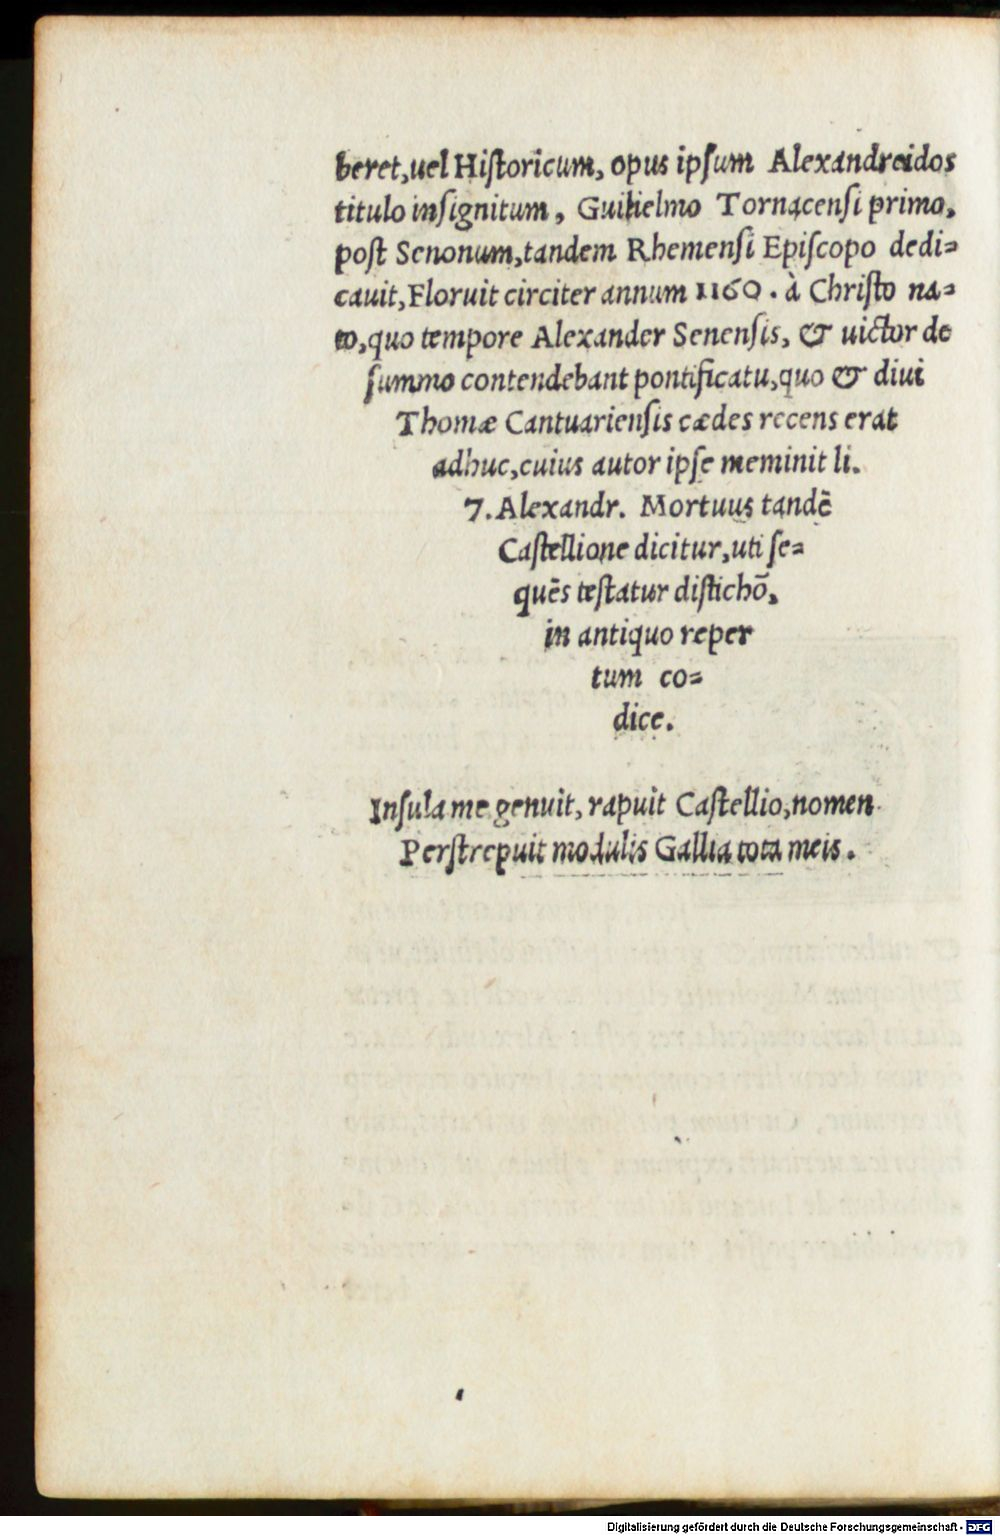 beret, uel Hiſtoricum, opus ipſum Alexandreidos
titulo inſignitum, Guilielmo Tornacenſi primo,
poſt Senonum, tandem Rhemenſi Epiſcopo dedi⸗
cauit, Floruit circiter annum 1160. à Chriſto na⸗
to, quo tempore Alexander Senenſis, & uictor de
ſummo contendebant pontificatu, quo & diui
Thomæ Cantuarienſis cædes recens erat
adhuc, cuius autor ipſe meminit li.
7. Alexandr. Mortuus tandē
Caſtellione dicitur, uti ſe⸗
quēs teſtatur diſtichō,
in antiquo reper
tum co⸗
dice.
Inſula me genuit, rapuit Caſtellio, nomen
Perſtrepuit modulis Gallia tota meis.
Digitalisierung gefördert durch die Deutsche Forschungsgemeinschaft - DFG